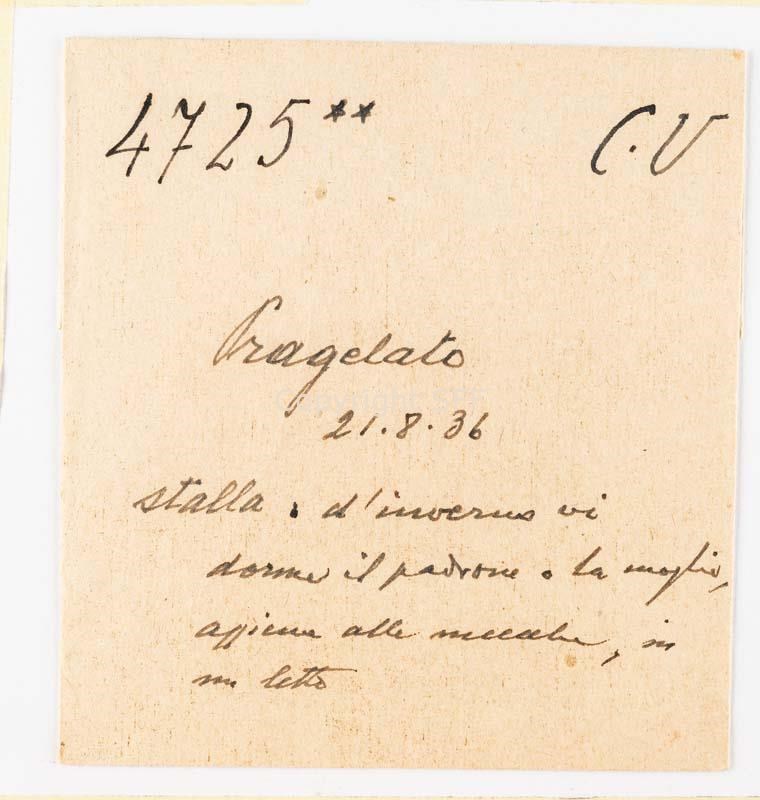 4725** C.V
Pragelato
21.8.36
stalla. d'inverno vi
dorme il padrone e la moglie,
assieme alle mucche, in
un letto